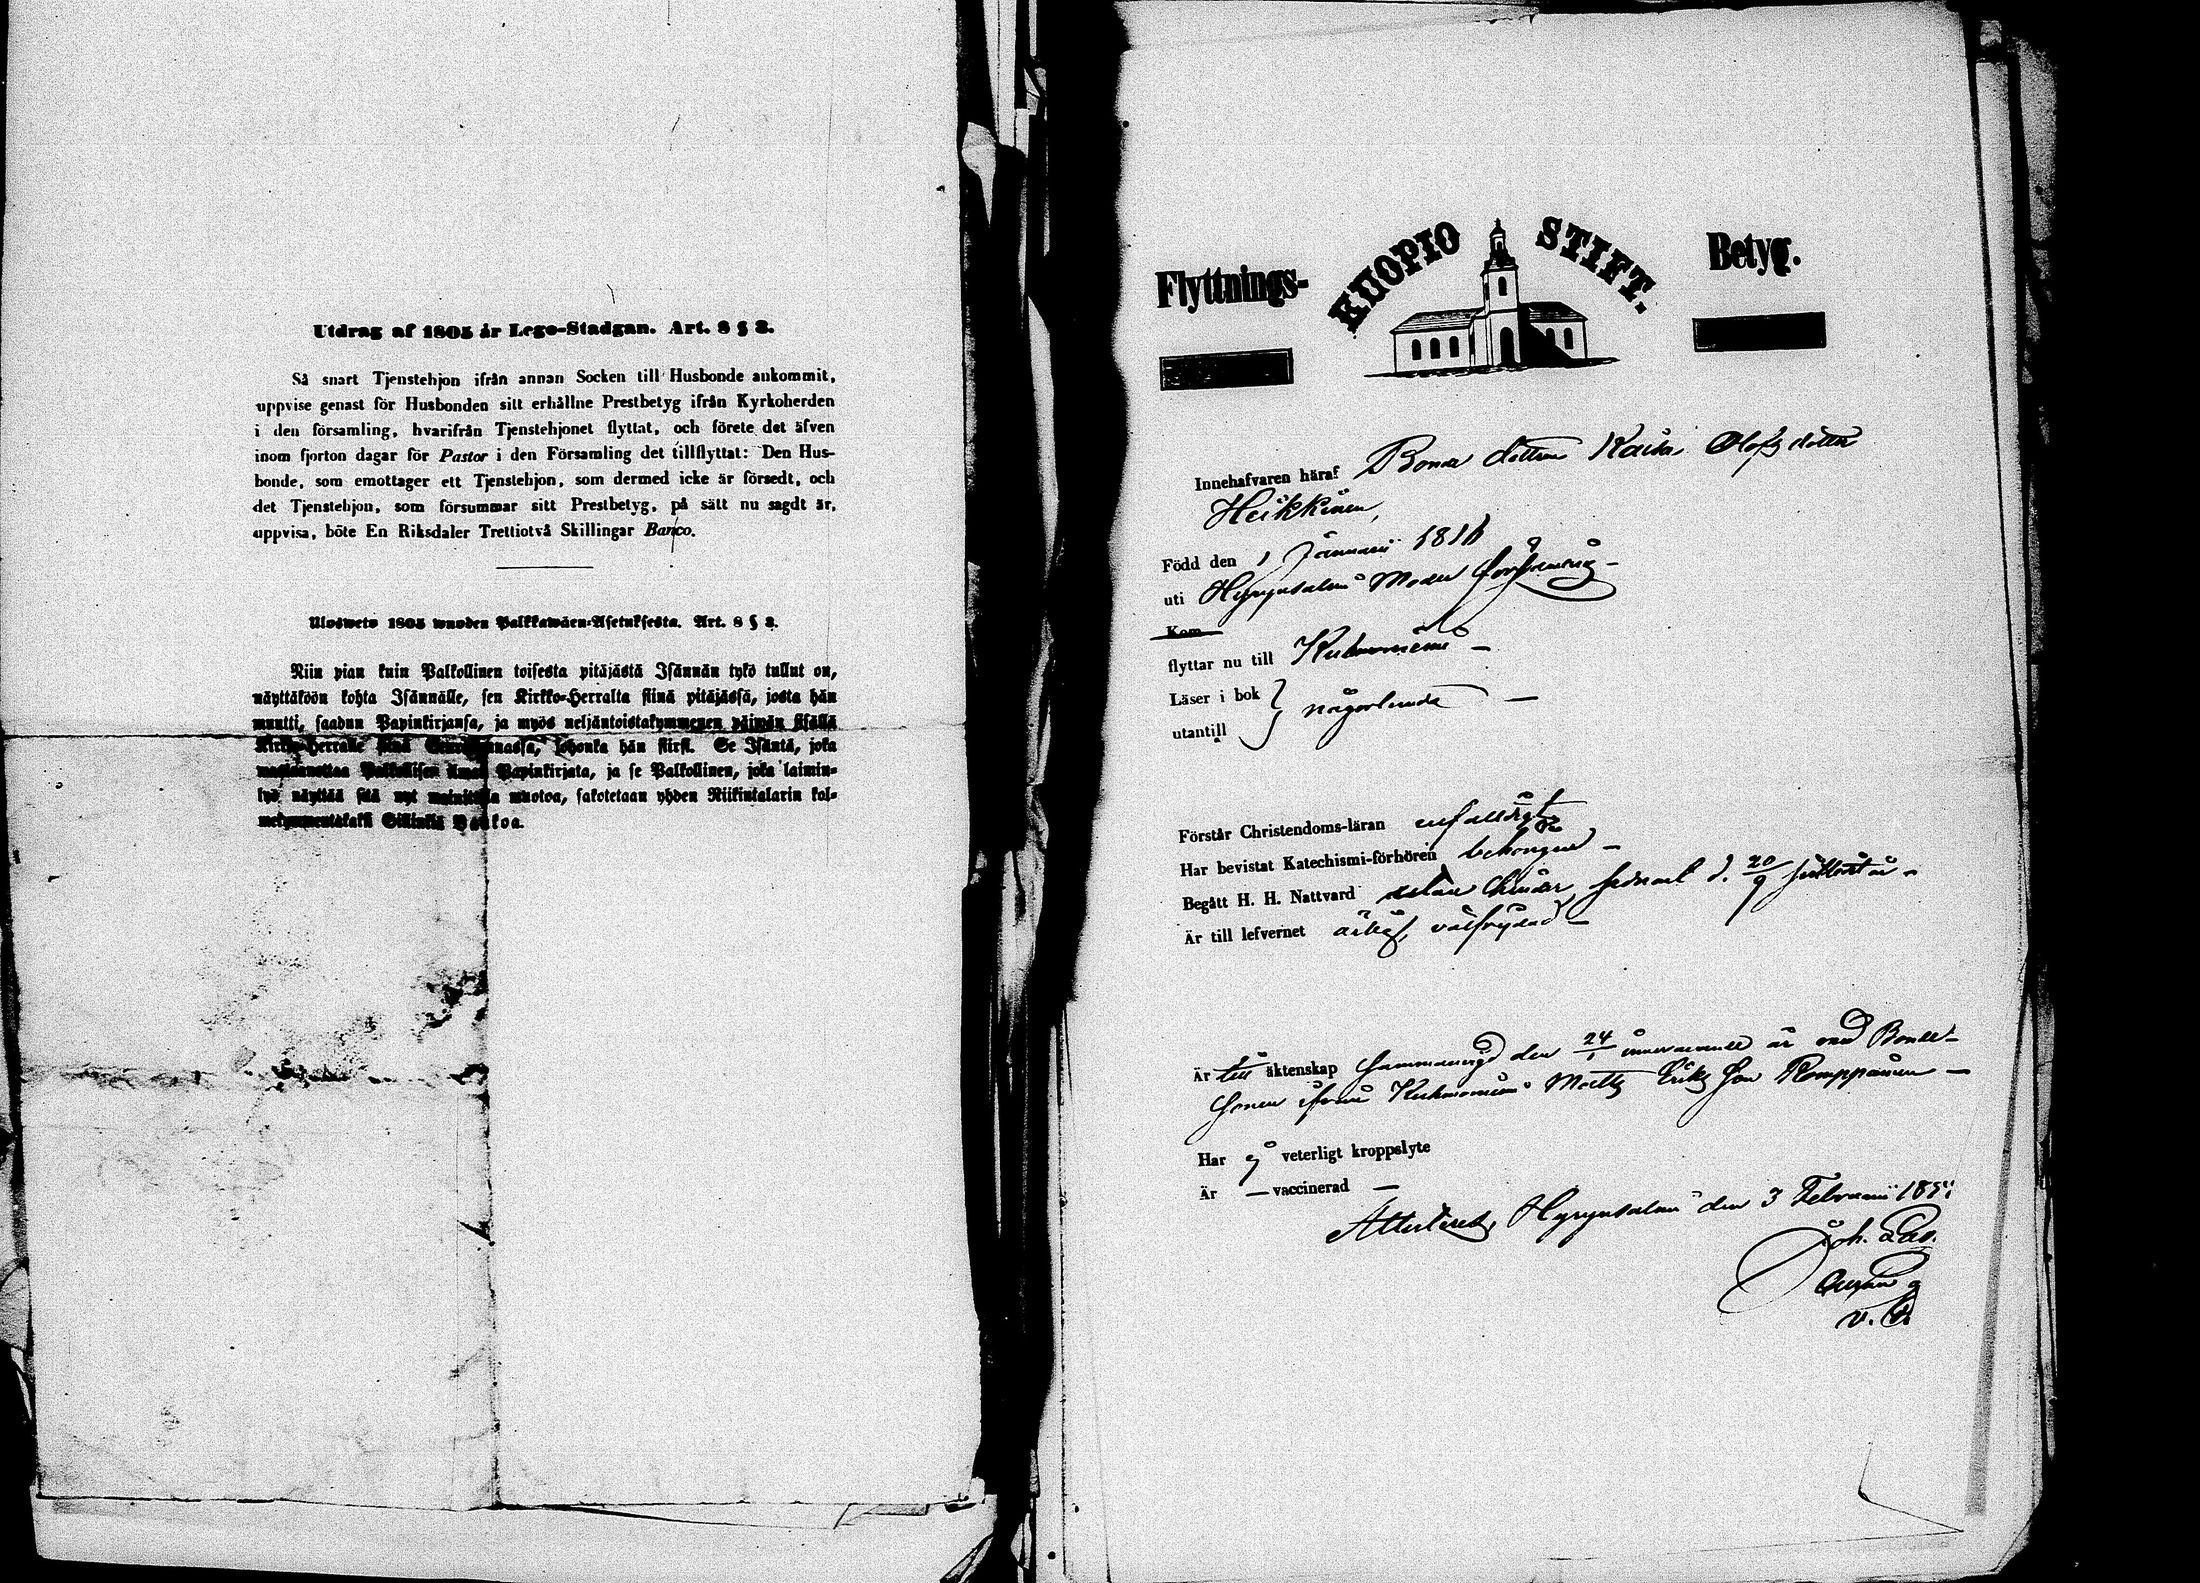 Utdrag af 1805 år Lego-Stadgan. Art. 8 § 3.
Så snart Tjenstehjon ifrån annan Socken till Husbonde ankommit,
uppvise genast för Husbonden sitt erhållne Prestbetyg ifrån Kyrkoherden
i den församling, hvarifrån Tjenstehjonet flyttat, och förete det äfven
inom fjorton dagar för Pastor i den Församling det tillflyttat: Den Hus-
bonde, som emottager ett Tjenstehjon, som dermed icke är försedt, och
det Tjenstehjon, som försummar sitt Prestbetyg, på sätt nu sagdt är,
uppvisa, böte En Riksdaler Trettiotvå Skillingar Banco.
Ulosweto 1805 wuoden Palkkawäen-Asetuksesta. Art. 8 § 3.
Niin pian kuin Palkollinen toisesta pitäjästä Isännän tykö tullut on,
näyttäköön kohta Isännälle, sen Kirkko-Herralta siinä pitäjässä, josta hän
muutti, saadun Papinkirjansa, ja myös neljäntoistakymmenen päiwän sisällä
Kirkko-Herralle siinä Seurakunnassa, johonka hän siirsi. Se Isäntä, joka
wastaanottaa Palkollisen ilman Papinkirjata, ja se Palkollinen, joka laimin-
lyö näyttää sitä nyt mainitulla muotoa, sakotetaan yhden Riikintalarin kol-
mekymmentäkaksi Skillinkiä Bankoa.
Flyttnings- KUOPIO STIFT. Betyg.
Innehafvaren häraf Bonde dottren Kaisa Olofs dotter
Heikkinen,
Född den 1 Januarii 1816
uti Hyrynsalmi Moder församling –
Kom
flyttar nu till Kuhmoniemi –
Läser i bok
utantill } någorlunda –
Förstår Christendoms-läran enfalldigt
Har bevistat Katechismi-förhören behörigen –
Begått H. H. Nattvard sedan d. 20/9 sistledet år –
Är till lefvernet ärlig, välfrejdad –
Är till äktenskap sammanvigd den 24/1 innevarande år med Bonde-
sonen ifrån Kuhmoniemi Matts Eriks son Romppainen –
Har ej veterligt kroppslyte
Är – vaccinerad –
Attesteras, Hyrynsalmi den 3 Februarii
Joh.
v.